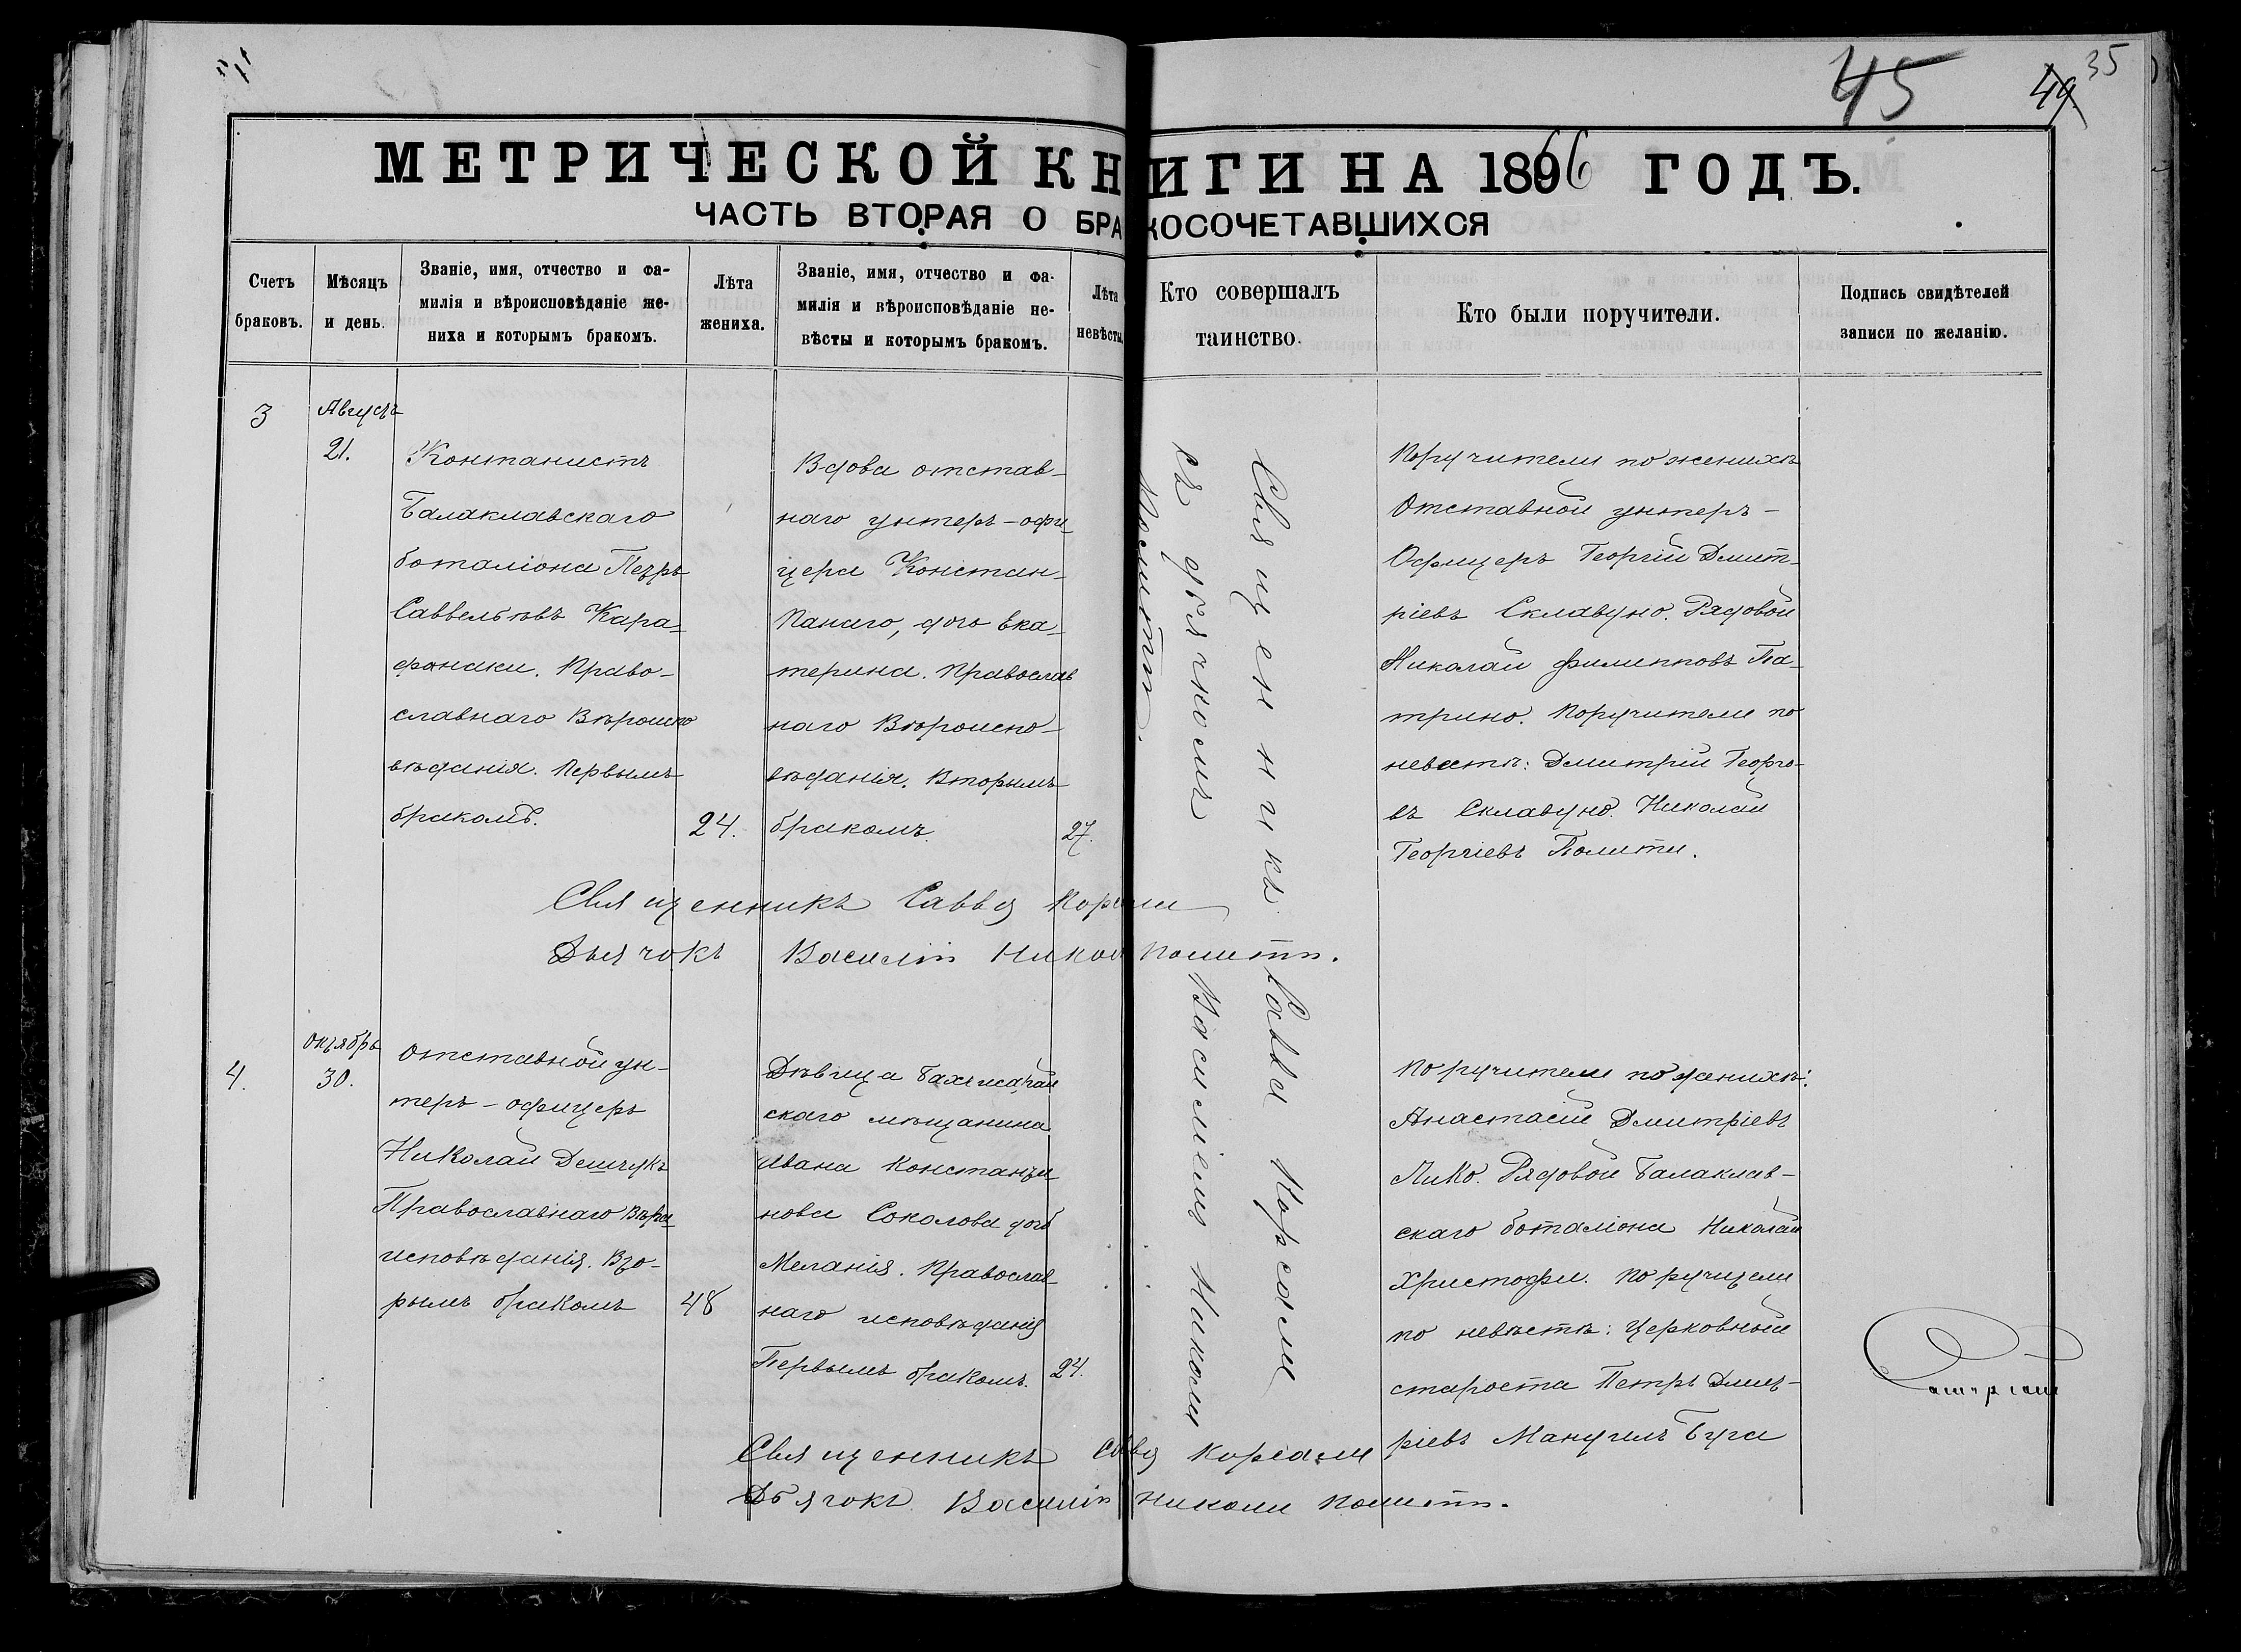 45
49
35
МЕТРИЧЕСКОЙ КНИГИ НА 1866 ГОДЪ.
ЧАСТЬ ВТОРАЯ О БРАКОСОЧЕТАВШИХСЯ
Счетъ
браковъ.
Мѣсяцъ
и день.
Званіе, имя, отчество и фа-
милія и вѣроисповѣданіе же-
ниха и которымъ бракомъ.
Лѣта
жениха.
Званіе, имя, отчество и фа-
милія и вѣроисповѣданіе не-
вѣсты и которымъ бракомъ.
Лѣта
невѣсты.
Кто совершалъ
таинство.
Кто были поручители.
Подпись свидѣтелей
записи по желанію.
3
Августъ
21.
Контанистъ
Балаклавскаго
боталіона Петръ
Саввельевъ Кара-
фонаки. Право-
славнаго Вѣроиспо
вѣданія. Первымъ
бракомъ.
24.
Вдова отстав-
наго унтеръ-офи
цера Констан-
Панаго, дочь Ека-
терина. Православ
наго Вѣроиспо-
вѣданія. Вторымъ
бракомъ.
27.
Священникъ Савва Корсали
съ дьячкомъ Василіемъ Николи
Полити.
Поручители по женихѣ
Отставной унтеръ-
Офицеръ Георгій Дмит-
ріевъ Склавуно. Рядовой
Николай Филипповъ Па-
трино. Поручители по
невестѣ: Дмитрій Георгі-
въ Склавуно. Николай
Георгіевъ Полити.
Священникъ Савва Корсали
Дьячокъ Василій Николи Полити.
4.
Октябрь
30.
Отставной ун-
теръ-офицеръ
Николай Демчукъ
Православнаго Вѣра
исповѣданія. Вто-
рымъ бракомъ
48
Дѣвица Бахчисарай
скаго мѣщанина
Ивана Константи
нова Соколова дочь
Меланія. Православ-
наго исповѣданія
Первымъ бракомъ.
24.
Поручители по женихѣ:
Анастасій Дмитріевъ
Лико. Рядовой Балаклав-
скаго боталіона Николай
Христофи. Поручители
по невѣстѣ: Церковный
староста Петръ Дмит-
ріевъ Мануилъ Буга
Священникъ Савва Корсали
Дьячокъ Василій Николи Полити.